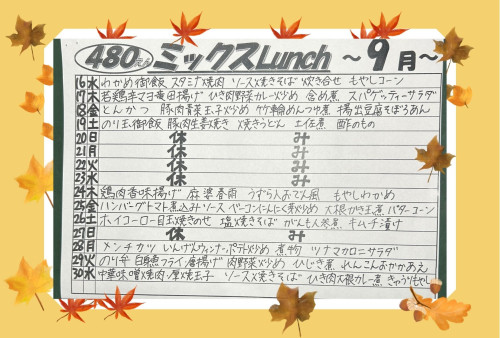 480円 ミックスLunch ～9月～
16水 わかめ御飯 スタミナ焼肉 ソース焼きそば 炊き合せ もやしコーン
17木 若鶏辛マヨ竜田揚げ ひき肉野菜カレー炒め 含め煮 スパゲッティーサラダ
18金 とんかつ 豚肉青菜玉子炒め 竹輪麺つゆ煮 揚出豆腐そぼろあん
19土 のり玉御飯 豚肉生姜焼き 焼きうどん 土佐煮 酢のもの
20日 休み
21月 休み
22火 休み
23水 休み
24木 鶏肉香味揚げ 麻婆春雨 うずら入おでん風 もやしわかめ
25金 ハンバーグトマト煮込みソース ベーコンにんにく芽炒め 大根かき玉煮 バターコーン
26土 ホイコーロー目玉焼きのせ 塩焼きそば がんも人参煮 キムチ漬け
27日 休み
28月 メンチカツ いんげんウィンナーポテト炒め 煮物 ツナマカロニサラダ
29火 のり弁 白身魚フライ唐揚げ 肉野菜炒め ひじき煮 れんこんおかかあえ
30水 中華味噌焼肉 厚焼玉子 ソース焼きそば ひき肉大根カレー煮 きゅうりもやし